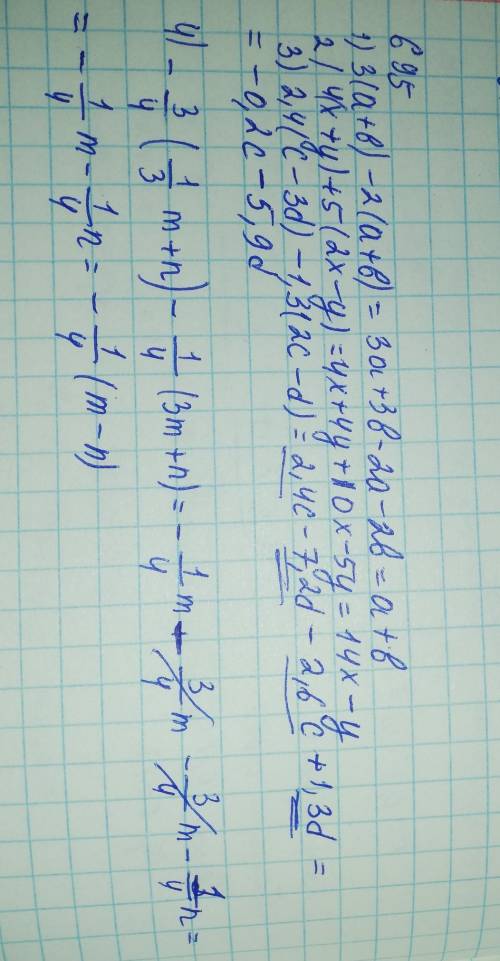 695
1) 3(a+b)-2(a+b)=3a+3b-2a-2b=a+b
2) 4(x+y)+5(2x-y)=4x+4y+10x-5y=14x-y
3) 2,4(c-3d)-1,3(2c-d)=2,4c-7,2d-2,6c+1,3d=
=-0,2c-5,9d
4) -3/4(1/3m+n)-1/4(3m+n)=-1/4m-3/4m-3/4m-1/4n=
=-1/4m-1/4n=-1/4(m-n)